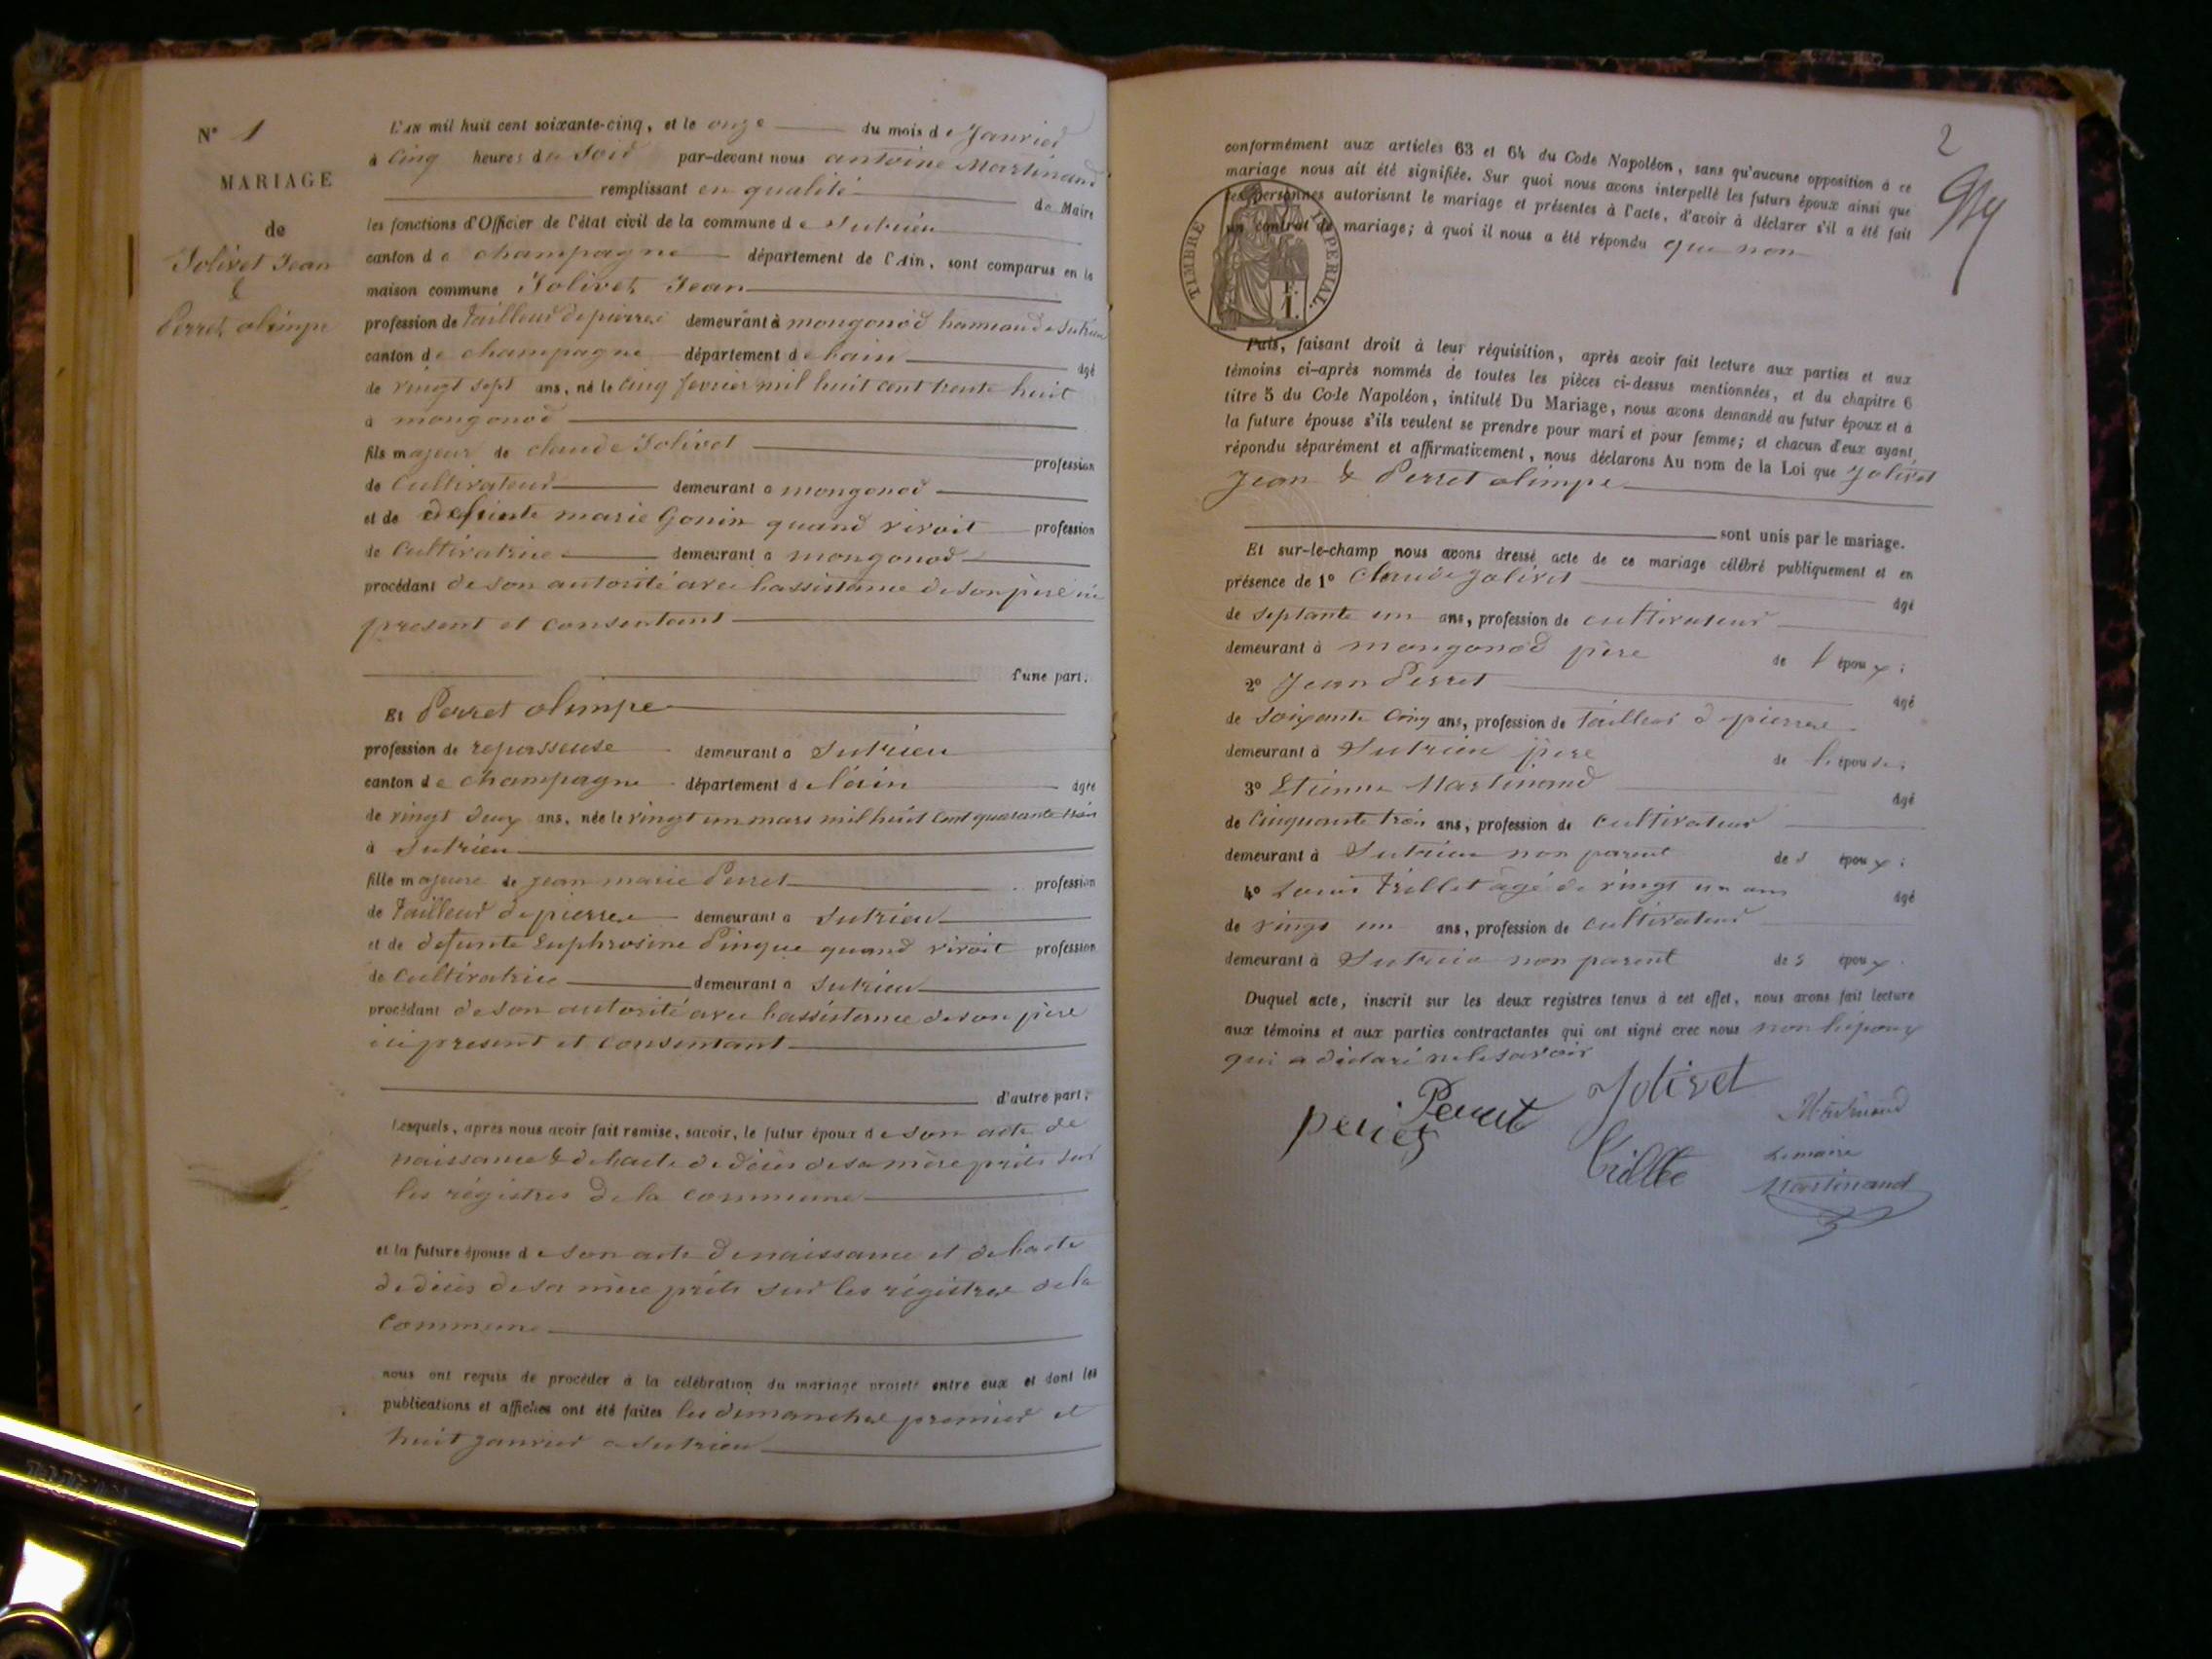 N° 1
MARIAGE
de
Jolivet Jean
&
Perret olimpe
L'AN mil huit cent soixante-cinq, et le onze du mois de Janvier
à Cinq heures du Soir par-devant nous antoine Martinand
remplissant en qualité de Maire
les fonctions d'Officier de l'état civil de la commune de Sutrieu
canton de champagne département de l'Ain, sont comparus en la
maison commune Jolivet Jean
profession de Tailleur de pierre demeurant à mongonod hameau de Sutrieu
canton de champagne département de lain âgé
de vingt sept ans, né le Cinq fevrier mil huit cent trente huit
à mongonod
fils majeur de claude Jolivet profession
de Cultivateur demeurant à mongonod
et de defunte marie Gonin quand vivoit profession
de Cultivatrice demeurant à mongonod
procédant de son autorité avec lassistance de son père ici
present et consentant
d'une part.
Et Perret olimpe
profession de repasseuse demeurant à Sutrieu
canton de champagne département de lain âgée
de vingt deux ans, née le vingt un mars mil huit Cent quarante trois
à Sutrieu
fille majeure de jean marie Perret profession
de Tailleur de pierre demeurant à Sutrieu
et de defunte Euphrosine Pingue quand vivoit profession
de Cultivatrice demeurant à Sutrieu
procédant de son autorité avec lassistance de son père
ici present et consentant
d'autre part;
Lesquels, après nous avoir fait remise, savoir, le futur époux de son acte de
naissance & de lacte de décès de sa mère prits sur
les régistres de la commune
et la future épouse de son acte de naissance et de lacte
de décès de sa mère prits sur les régistres de la
Commune
nous ont requis de procéder à la célébration du mariage projeté entre eux et dont les
publications et affiches ont été faites les dimanches premier et
huit janvier a Sutrieu
2
conformément aux articles 63 et 64 du Code Napoléon, sans qu'aucune opposition à ce
mariage nous ait été signifiée. Sur quoi nous avons interpellé les futurs époux ainsi que
les personnes autorisant le mariage et présentes à l'acte, d'avoir à déclarer s'il a été fait
un contrat de mariage; à quoi il nous a été répondu que non
TIMBRE IMPERIAL.
1
Puis, faisant droit à leur réquisition, après avoir fait lecture aux parties et aux
témoins ci-après nommés de toutes les pièces ci-dessus mentionnées, et du chapitre 6
titre 5 du Code Napoléon, intitulé Du Mariage, nous avons demandé au futur époux et à
la future épouse s'ils veulent se prendre pour mari et pour femme; et chacun d'eux ayant
répondu séparément et affirmativement, nous déclarons Au nom de la Loi que Jolivet
Jean & Perret olimpe
sont unis par le mariage.
Et sur-le-champ nous avons dressé acte de ce mariage célébré publiquement et en
présence de 1° Claude Jolivet âgé
de septante un ans, profession de cultivateur
demeurant à mongonod père de l'époux;
2° Jean Perret âgé
de Soixante Cinq ans, profession de Tailleur de pierre
demeurant à Sutrieu père de l'épouse;
3° Etienne Martinand âgé
de Cinquante trois ans, profession de Cultivateur
demeurant à Sutrieu non parent des époux;
4° Louis Trillet àgé de vingt un ans âgé
de vingt un ans, profession de Cultivateur
demeurant à Sutrieu non parent des époux.
Duquel acte, inscrit sur les deux registres tenus à cet effet, nous avons fait lecture
aux témoins et aux parties contractantes qui ont signé avec nous non lépoux
qui a déclaré ne le savoir
Jolivet
Martinand
Le maire
Martinand